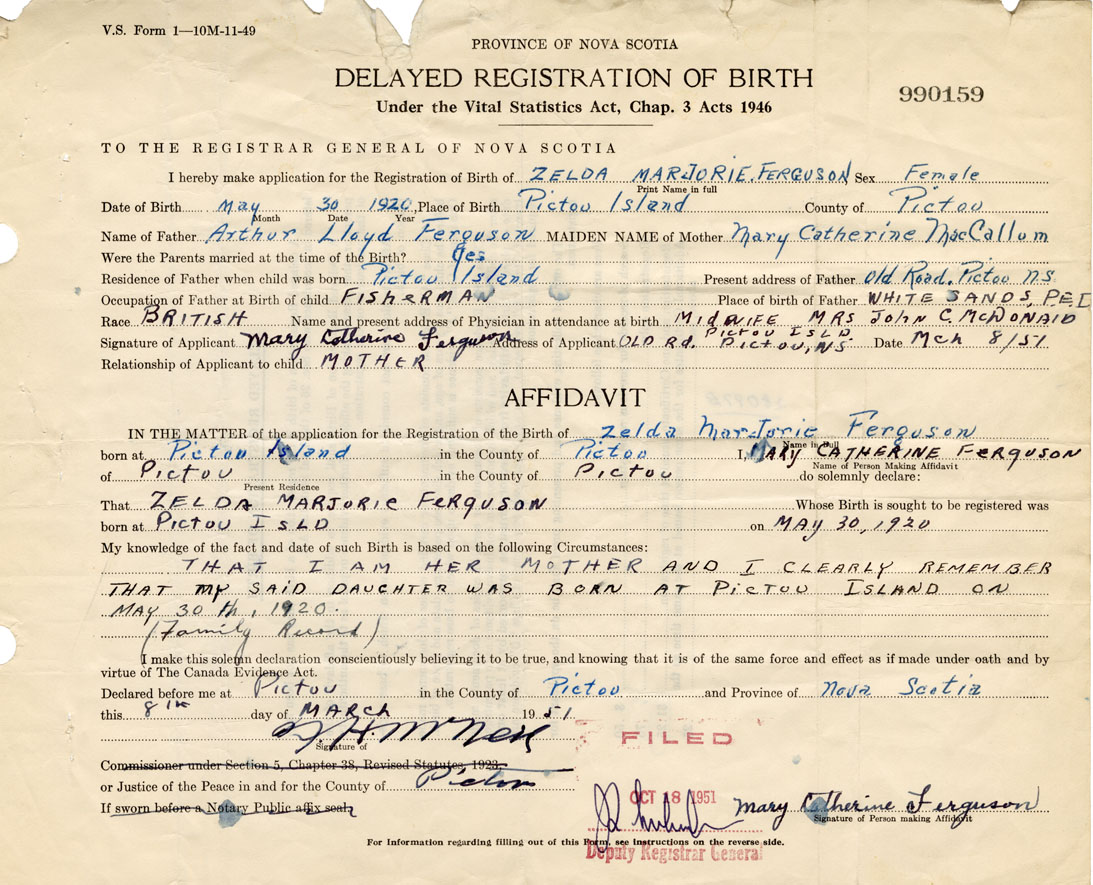 V.S. Form 1—10M-11-49
PROVINCE OF NOVA SCOTIA
DELAYED REGISTRATION OF BIRTH
990159
Under the Vital Statistics Act, Chap. 3 Acts 1946
TO THE REGISTRAR GENERAL OF NOVA SCOTIA
I hereby make application for the Registration of Birth of ZELDA MARJORIE FERGUSON Sex Female
Print Name in full
Date of Birth May 30 1920, Place of Birth Pictou Island County of Pictou
Month Date Year
Name of Father Arthur Lloyd Ferguson MAIDEN NAME of Mother Mary Catherine MacCallum
Were the Parents married at the time of the Birth? Yes
Residence of Father when child was born Pictou Island Present address of Father Old Road, Pictou N.S.
Occupation of Father at Birth of child FISHERMAN Place of birth of Father WHITE SANDS, P.E.I
Race BRITISH Name and present address of Physician in attendance at birth MIDWIFE MRS JOHN C. McDONALD
PICTOU ISLD.
Signature of Applicant Mary Catherine Ferguson Address of Applicant OLD Rd. PICTOU, NS. Date Mch 8/51
Relationship of Applicant to child MOTHER
AFFIDAVIT
IN THE MATTER of the application for the Registration of the Birth of Zelda Marjorie Ferguson
Name in full
born at Pictou Island in the County of Pictou I, MARY CATHERINE FERGUSON
Name of Person Making Affidavit
of Pictou in the County of Pictou do solemnly declare:
Present Residence
That ZELDA MARJORIE FERGUSON Whose Birth is sought to be registered was
born at PICTOU ISLD on MAY 30, 1920
My knowledge of the fact and date of such Birth is based on the following Circumstances:
THAT I AM HER MOTHER AND I CLEARLY REMEMBER
THAT MY SAID DAUGHTER WAS BORN AT PICTOU ISLAND ON
MAY 30 th, 1920.
(Family Record)
I make this solemn declaration conscientiously believing it to be true, and knowing that it is of the same force and effect as if made under oath and by
virtue of The Canada Evidence Act.
Declared before me at Pictou in the County of Pictou and Province of Nova Scotia
this 8th day of MARCH 1951
Signature of
FILED
Commissioner under Section 5, Chapter 38, Revised Statutes, 1923,
or Justice of the Peace in and for the County of Pictou
OCT 18 1951
If sworn before a Notary Public affix seal,
Mary Catherine Ferguson
Signature of Person making Affidavit
For Information regarding filling out of this Form, see instructions on the reverse side.
Deputy Registrar General